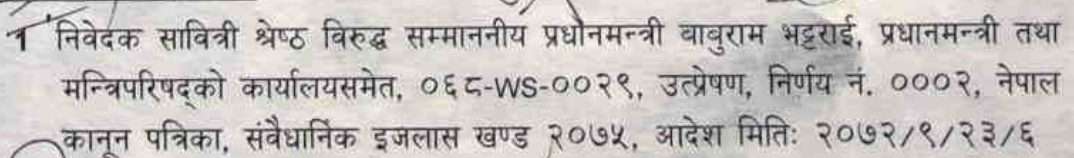 १ निवेदक सावित्री श्रेष्ठ विरुद्ध सम्माननीय प्रधानमन्त्री बाबुराम भट्टराई, प्रधानमन्त्री तथा
मन्त्रिपरिषद्को कार्यालयसमेत, ०६८-WS-००२९, उत्प्रेषण, निर्णय नं. ०००२, नेपाल
कानून पत्रिका, संवैधानिक इजलास खण्ड २०७५, आदेश मितिः २०७२/९/२३/६